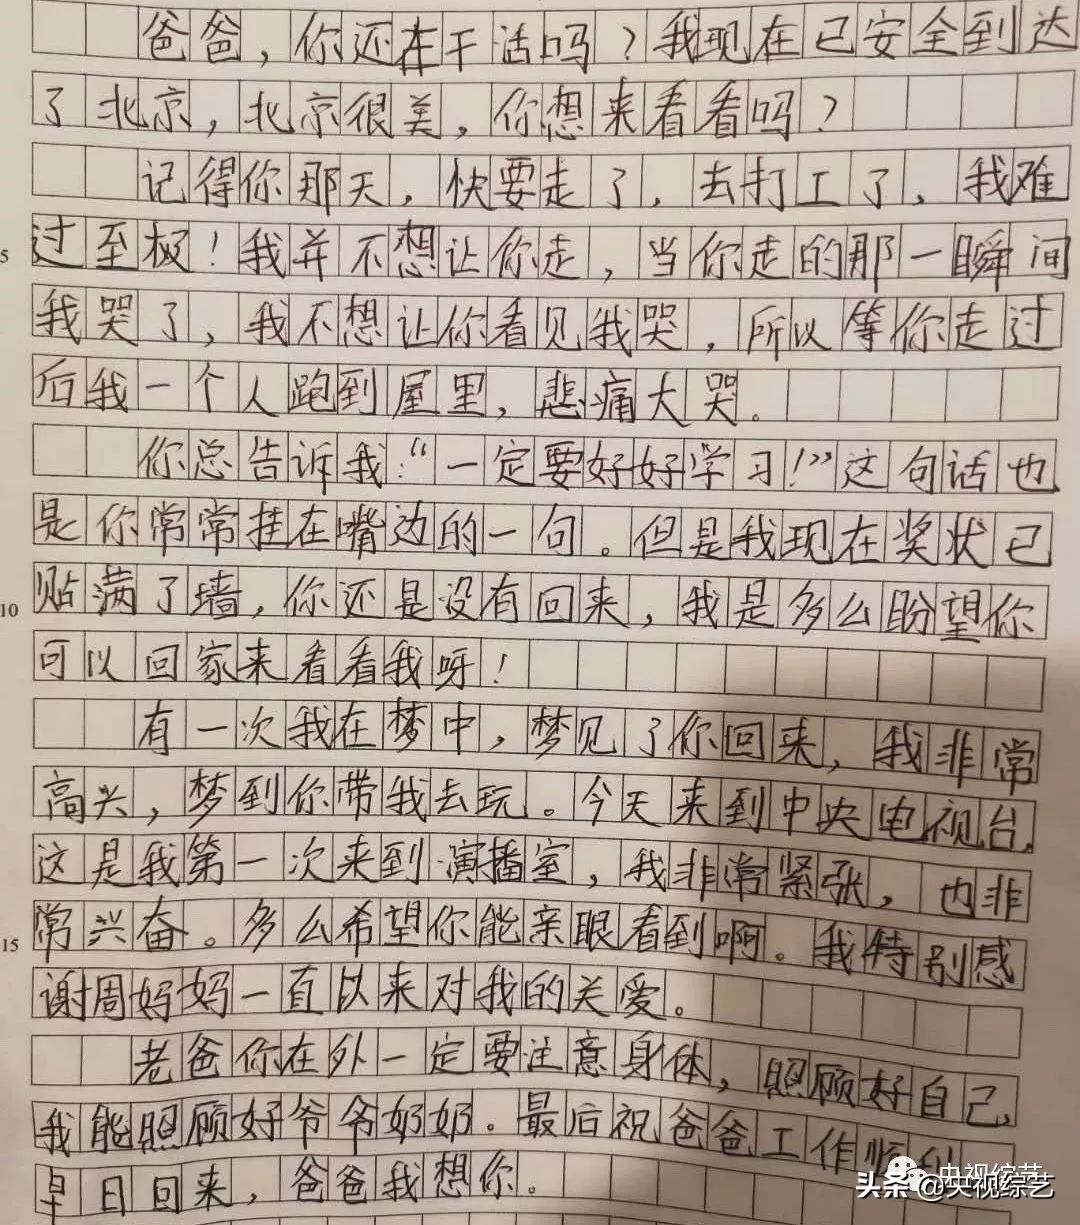 爸爸，你还在干活吗？我现在已安全到达
了北京，北京很美，你想来看看吗？
记得你那天，快要走了，去打工了，我难
5 过至极！我并不想让你走，当你走的那一瞬间
我哭了，我不想让你看见我哭，所以等你走过
后我一个人跑到屋里，悲痛大哭。
你总告诉我：“一定要好好学习！”这句话也
是你常常挂在嘴边的一句。但是我现在奖状已
10 贴满了墙，你还是没有回来，我是多么盼望你
可以回家来看看我呀！
有一次我在梦中，梦见了你回来，我非常
高兴，梦到你带我去玩。今天来到中央电视台，
这是我第一次来到演播室，我非常紧张，也非
15 常兴奋。多么希望你能亲眼看到啊。我特别感
谢周妈妈一直以来对我的关爱。
老爸你在外一定要注意身体，照顾好自己，
我能照顾好爷爷奶奶。最后祝爸爸工作顺
早日回来，爸爸我想你。
央视综艺
头条@央视综艺